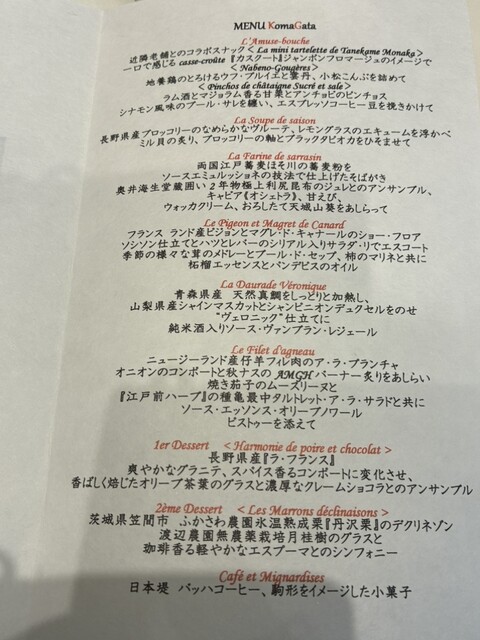 MENU KomaGata
L'Amuse-bouche
近隣老舗とのコラボスナック < La mini tartelette de Tanekame Monaka >
一口で感じる casse-croûte 『カスクート』ジャンボンフロマージュのイメージで
< Nabeno-Gougères >
地養鶏のとろけるウフ・ブルイエと雲丹、小松こんぶを詰めて
< Pinchos de châtaigne Sucré et sale >
ラム酒とマジョラム香る甘栗とアンチョビのピンチョス
シナモン風味のブール・サレを纏い、エスプレッソコーヒー豆を挽きかけて
La Soupe de saison
長野県産ブロッコリーのなめらかなヴルーテ、レモングラスのエキュームを浮かべ
ミル貝の炙り、ブロッコリーの軸とブラックタピオカをひそませて
La Farine de sarrasin
両国江戸蕎麦ほそ川の蕎麦粉を
ソースエミュルッショネの技法で仕上げたそばがき
奥井海生堂蔵囲い2年物極上利尻昆布のジュレとのアンサンブル、
キャビア《オシェトラ》、甘えび、
ウォッカクリーム、おろしたて天城山葵をあしらって
Le Pigeon et Magret de Canard
フランス ランド産ピジョンとマグレ・ド・キャナールのショー・フロア
ソシソン仕立てとハツとレバーのシリアル入りサラダ・リでエスコート
季節の様々な茸のメレとプードル・ド・セップ、柿のマリネと共に
柘榴エッセンスとパンデピスのオイル
La Daurade Véronique
青森県産 天然真鯛をしっとりと加熱し、
山梨県産シャインマスカットとシャンピニオンデュクセルをのせ
"ヴェロニック"仕立てに
純米酒入りソース・ヴァンブラン・レジェール
Le Filet d'agneau
ニュージーランド産仔羊フィレ肉のア・ラ・プランチャ
オニオンのコンポートと秋ナスの AMGH バーナー炙りをあしらい
焼き茄子のムースリーヌと
『江戸前ハーブ』の種亀最中タルトレット・ア・ラ・サラドと共に
ソース・エッソンス・オリーブノワール
ピストゥーを添えて
1er Dessert < Harmonie de poire et chocolat >
長野県産『ラ・フランス』
爽やかなグラニテ、スパイス香るコンポートに変化させ、
香ばしく焙じたオリーブ茶葉のグラスと濃厚なクレームショコラとのアンサンブル
2ème Dessert < Les Marrons déclinaisons >
茨城県笠間市 ふかさわ農園氷温熟成栗『丹沢栗』のデクリネゾン
渡辺農園無農薬栽培月桂樹のグラスと
珈琲香る軽やかなエスプーマとのシンフォニー
Café et Mignardises
日本堤 バッハコーヒー、駒形をイメージした小菓子